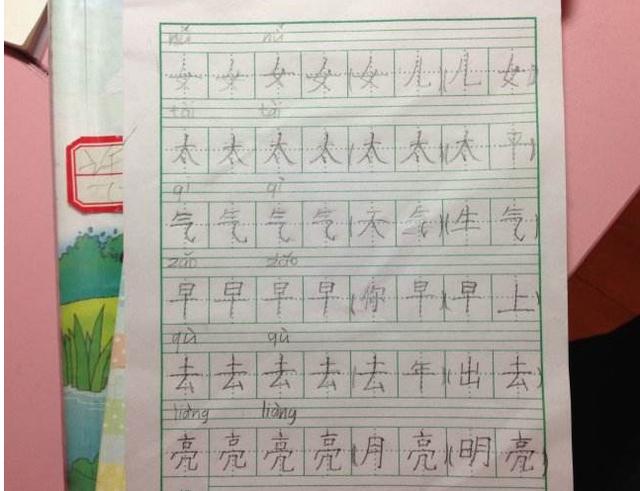 nǚ nǚ
女 女 女 女 (女 儿)(儿 女)
tài tài
太 太 太 太 (太 太)(太 平)
qì qì
气 气 气 气 (天 气)(生 气)
zǎo zǎo
早 早 早 早 (你 早)(早 上)
qù qù
去 去 去 去 (去 年)(出 去)
liàng liàng
亮 亮 亮 亮 (月 亮)(明 亮)